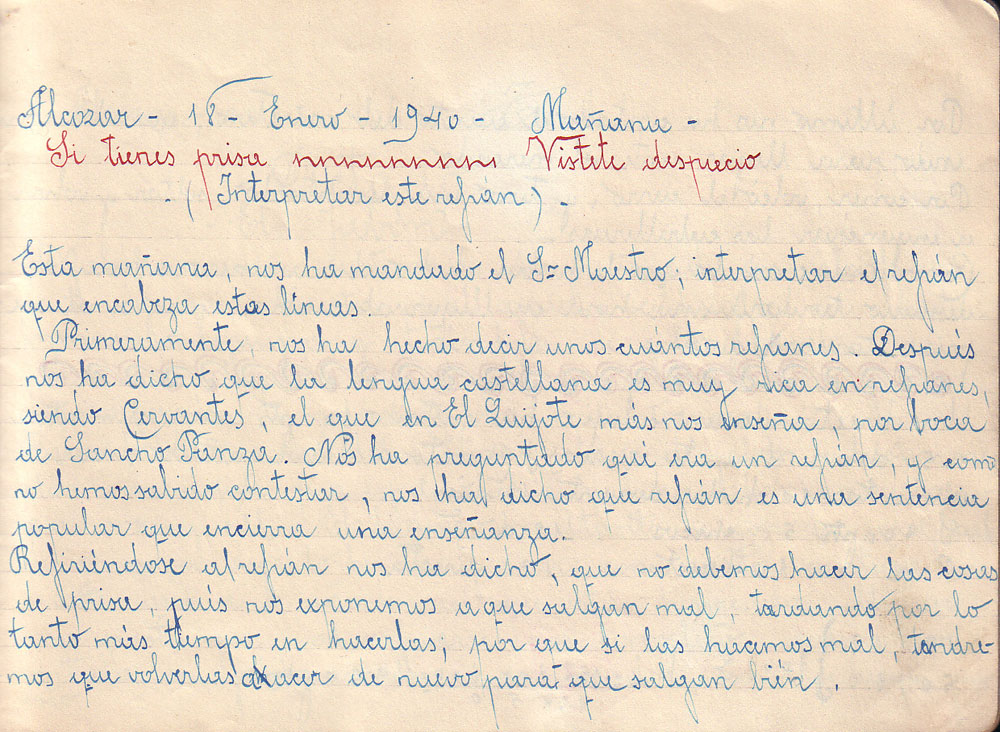 Alcozar - 18 - Enero - 1940 - Mañana -
Si tienes prisa Vistete despecio
. (Interpretar este refrán) .
Esta mañana, nos ha mandado el Sr Maestro; interpretar el refrán
que encabeza estas líneas.
Primeramente, nos ha hecho decir unos cuántos refranes. Después
nos ha dicho que la lengua castellana es muy rica en refranes,
siendo Cervantes, el que en El Quijote más nos enseña, por boca
de Sancho Panza. Nos ha preguntado qué era un refrán, y como
no hemos sabido contestar, nos ha dicho que refrán es una sentencia
popular que encierra una enseñanza.
Refiriéndose al refrán nos ha dicho, que no debemos hacer las cosas
de prisa, pués nos exponemos a que salgan mal, tardando por lo
tanto más tiempo en hacerlas; por que si las hacemos mal, tendre-
mos que volverlas a hacer de nuevo para que salgan bién.